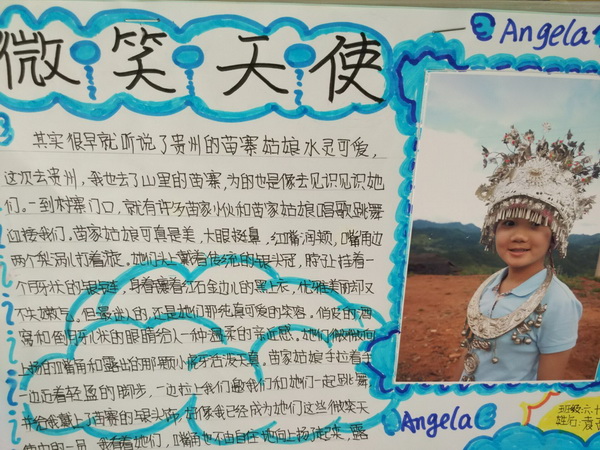 微笑天使
Angela
其实很早就听说了贵州的苗寨姑娘水灵可爱,
这次去贵州,我也去了山里的苗寨,为的也是像去见识见识她
们。一到村寨门口,就有许多苗家小伙和苗家姑娘唱歌跳舞
迎接我们。苗家姑娘可真是美,大眼挺鼻,红嘴润颊,嘴角边
两个梨涡儿打着旋。她们头上戴着传统的银头冠,脖子挂着一
个月牙状的银链,身着镶着红石金边儿的黑上衣,优雅美丽却又
不失嫩气。但露出人的,还是她们那纯真可爱的笑容,俏皮的酒
窝和倒月牙状的眼睛给人一种温柔的亲近感。她们微微向
上扬的嘴角和露出的那颗小虎牙活泼天真。苗家姑娘手拉着手
一边迈着轻盈的脚步,一边拉上我们邀我们和她们一起跳舞,
并给我戴上了苗寨的银头饰,好像我已经成为她们这些微笑天
使中的一员,我看着她们,嘴角也不由自在地向上扬了起来,露
Angela
班级:六十
姓名:袁